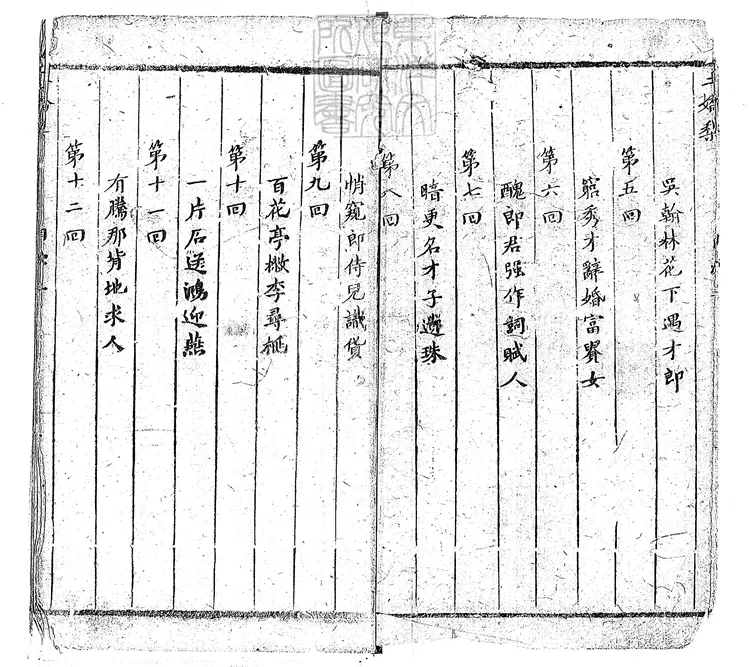 吳翰林花下遇才郎
第五回
窮秀才辭婚富貴女
第六回
醜郎君强作詞賦人
第七回
暗更名才子遺珠
第八回
悄窺郎侍兒識貨
第九回
百花亭撇李尋桃
第十回
一片石送鴻迎燕
第十一回
有騰那背地求人
第十二回